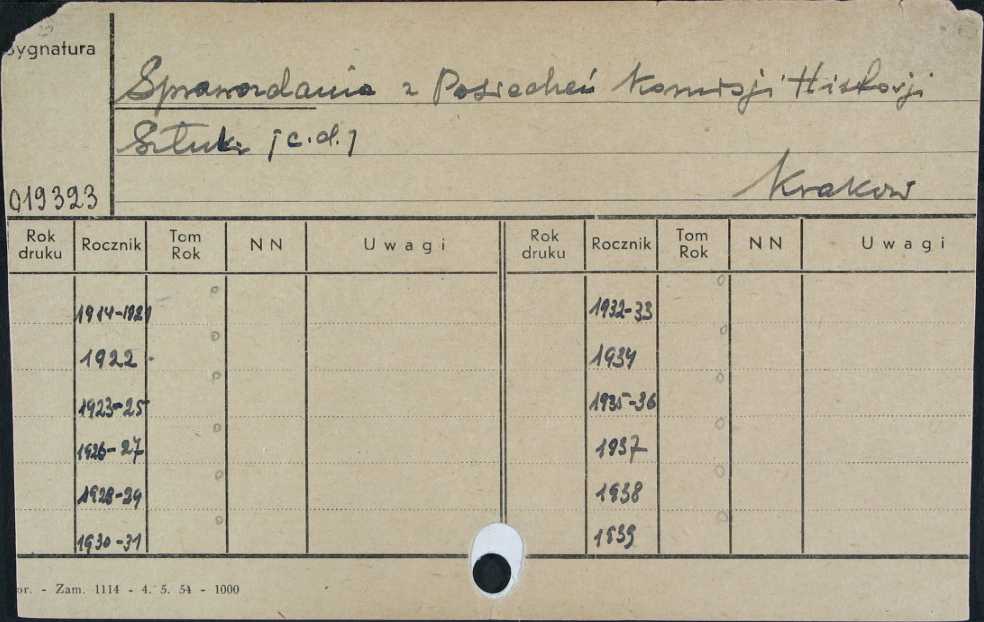 Sygnatura
Sprawozdania z Posiedzeń Komisji Historji
Sztuki [c.d.]
Krakow
019323
Rok druku Rocznik Tom Rok NN Uwagi Rok druku Rocznik Tom Rok NN Uwagi
1914-1921 1932-33
1922 1934
1923-25 1935-36
1926-27 1937
1928-29 1938
1930-31 1939
or. - Zam. 1114 - 4. 5. 54 - 1000